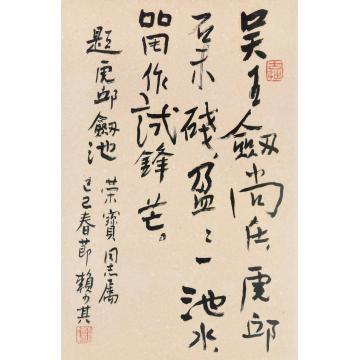 吴王劒尚在虎邱
石未碊，盈〻一池水
留作試鋒芒。
題虎邱劒池 榮寶同志屬
己巳春節賴少其